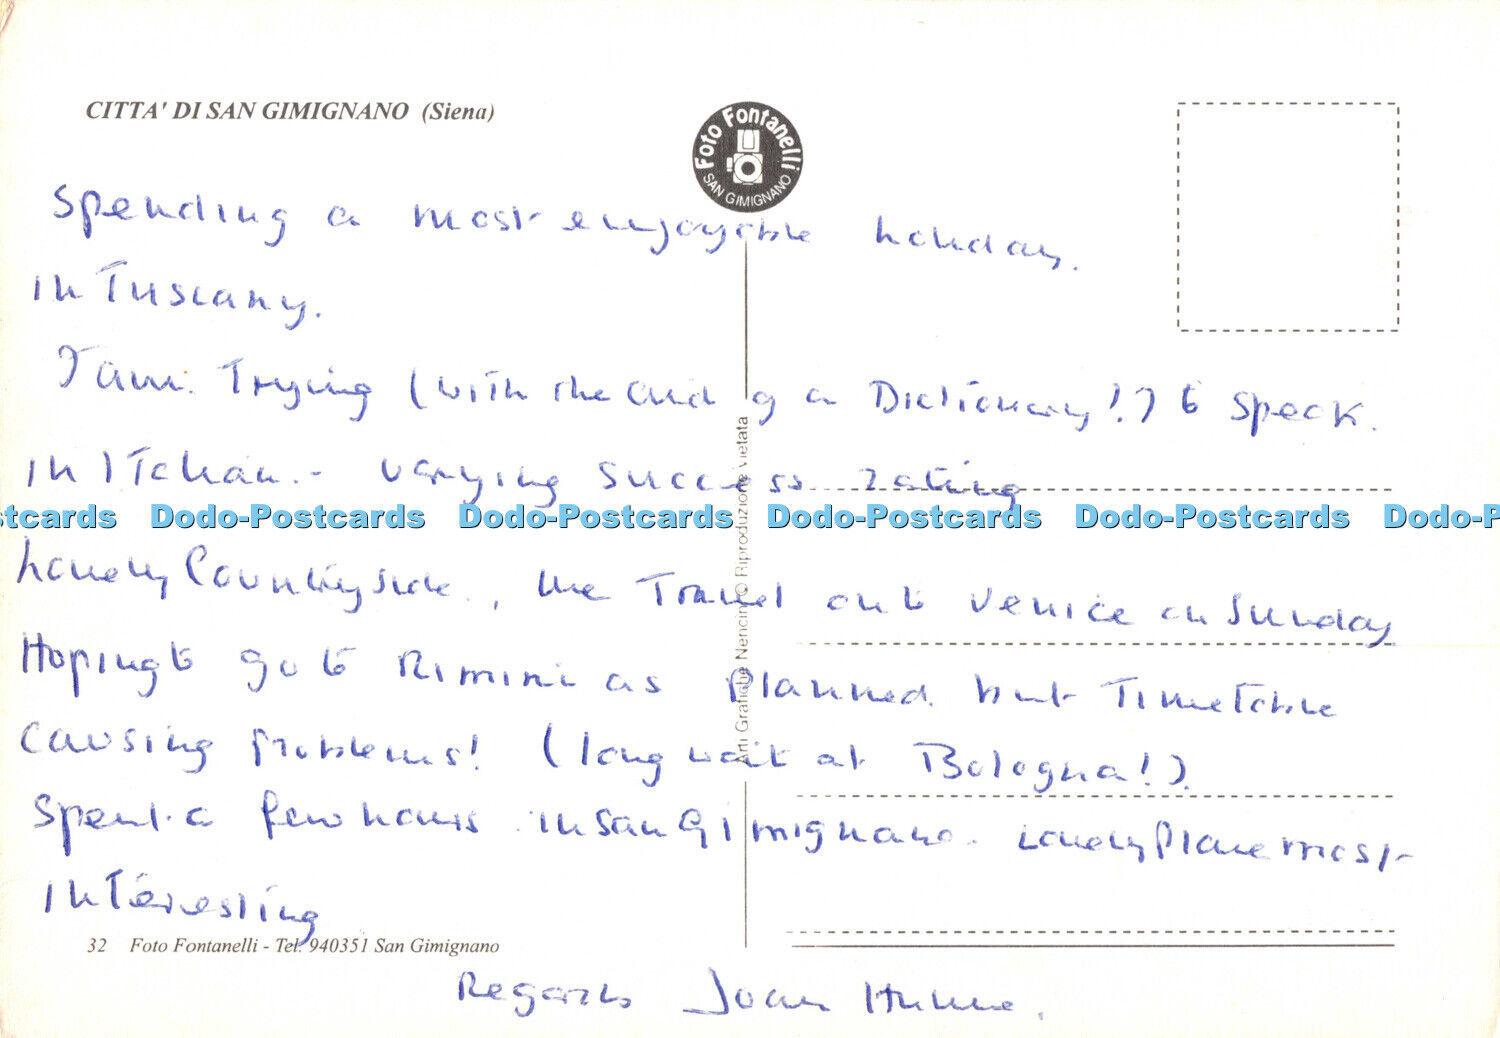 CITTA' DI SAN GIMIGNANO (Siena)
Foto Fontanelli
SAN GIMIGNANO
Spending a most enjoyable holiday.
in Tuscany.
I am Trying (with the aid of a Dictionary!) to speak.
in Italian. - varying success
Dodo-Postcards Dodo-Postcards Dodo-Postcards Dodo-Postcards
Lovely Countryside, we Travel out to Venice on Sunday
Hoping to go to Rimini as planned. but Timetable
causing problems! (long wait at Bologna!).
Spent a few hours in San Gimignano. Lovely place most
interesting
32 Foto Fontanelli - Tel. 940351 San Gimignano
Regards Joan Hulme.
Arti Grafiche Nencini © Riproduzione vietata